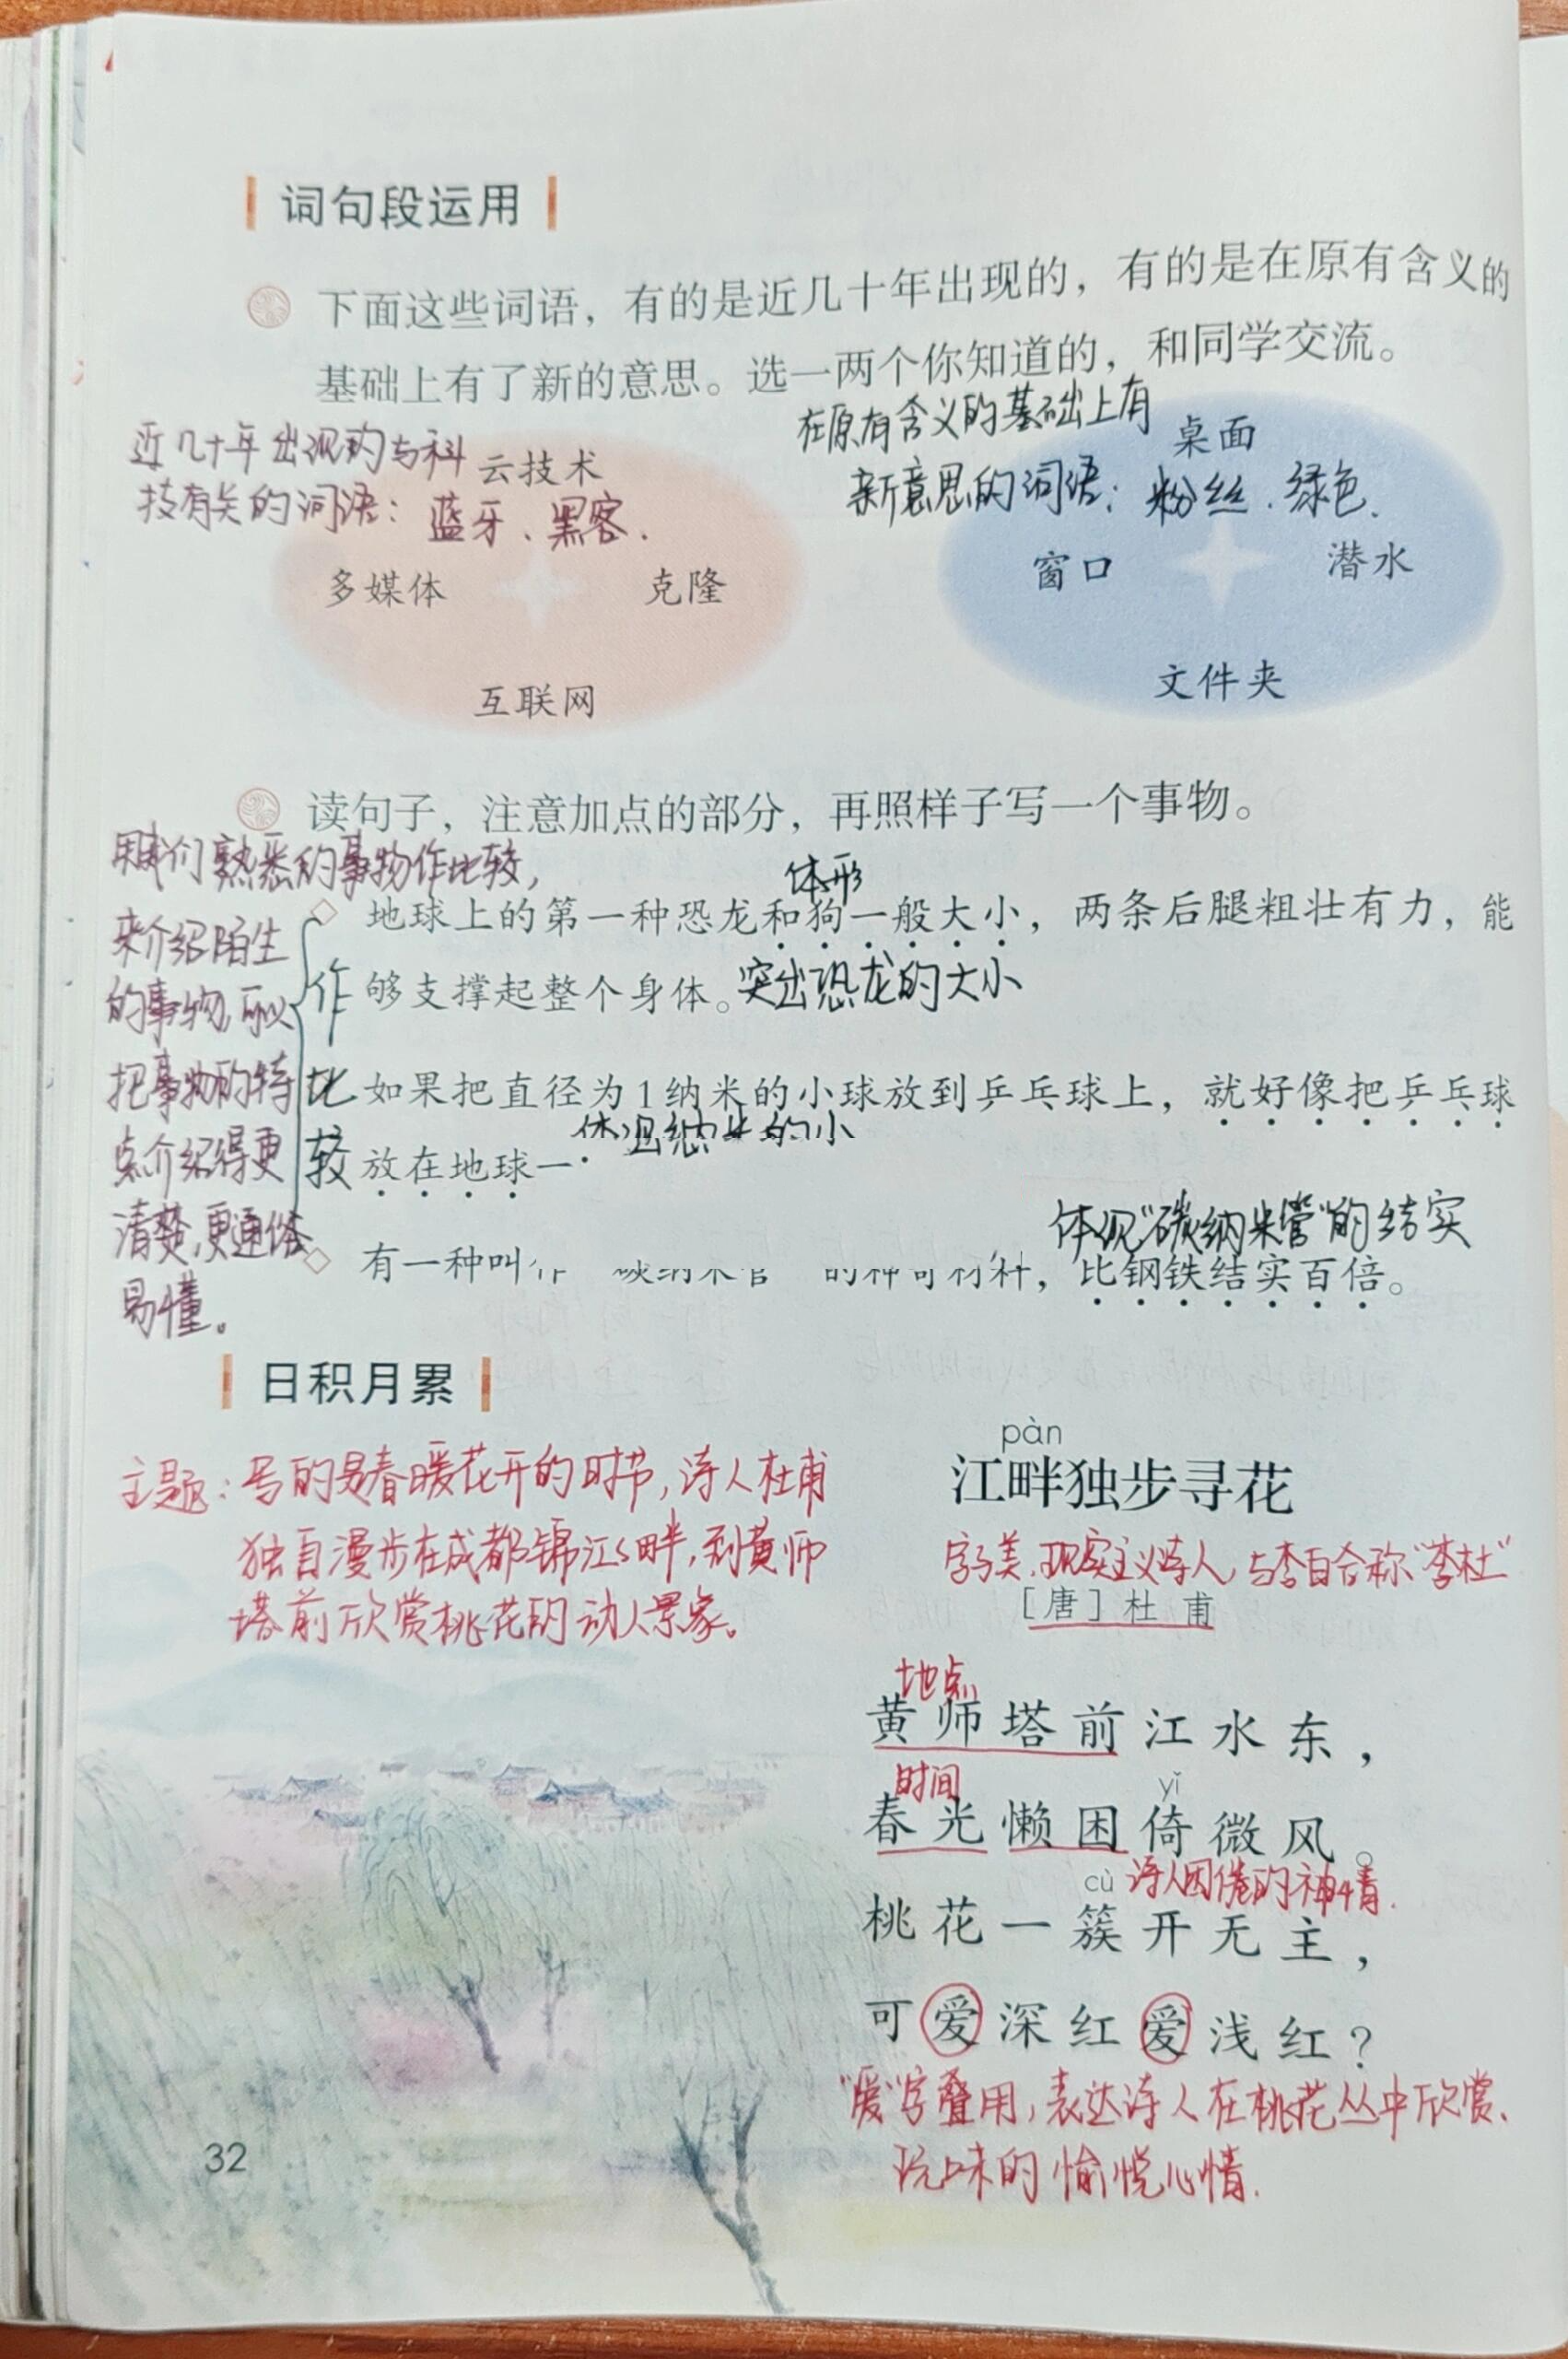 词句段运用
下面这些词语，有的是近几十年出现的，有的是在原有含义的
基础上有了新的意思。选一两个你知道的，和同学交流。
近几十年出现的与科
技有关的词语：蓝牙、黑客.
云技术
多媒体
克隆
互联网
在原有含义的基础上有
新意思的词语：粉丝.绿色.
桌面
窗口
潜水
文件夹
读句子，注意加点的部分，再照样子写一个事物。
用我们熟悉的事物作比较，
来介绍陌生
的事物,可以
把事物的特
点介绍得更
清楚,更通俗
易懂。
作
比
较
体形
地球上的第一种恐龙和狗一般大小，两条后腿粗壮有力，能
够支撑起整个身体。突出恐龙的大小
如果把直径为1纳米的小球放到乒乓球上，就好像把乒乓球
体现纳米的小
放在地球
体现“碳纳米管”的结实
有一种叫作 碳纳米管 的神奇材料，比钢铁结实百倍。
日积月累
主题：写的是春暖花开的时节，诗人杜甫
独自漫步在成都锦江江畔，到黄师
塔前欣赏桃花的动人景象。
pàn
江畔独步寻花
字子美.现实主义诗人,与李白合称“李杜”
［唐］杜甫
地点
黄师塔前江水东，
时间
yǐ
春光懒困倚微风。
cù 诗人困倦的神情.
桃花一簇开无主，
可爱深红爱浅红？
“爱”字叠用，表达诗人在桃花丛中欣赏、
玩味的愉悦心情.
32